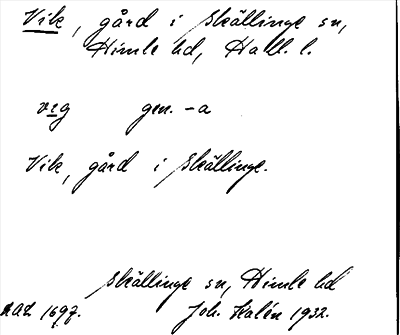 Vik, gård i Skällinge sn,
Himle hd, Hall. l.
veg gen. -a
Vik, gård i Skällinge.
Skällinge sn, Himle hd
1697. Joh. Kalén 1932.